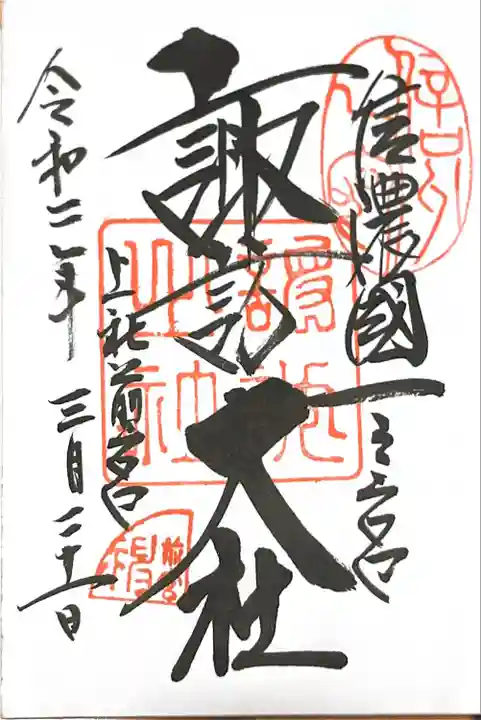 信濃國一之宮
諏訪大社
上社前宮
令和二年三月二十一日